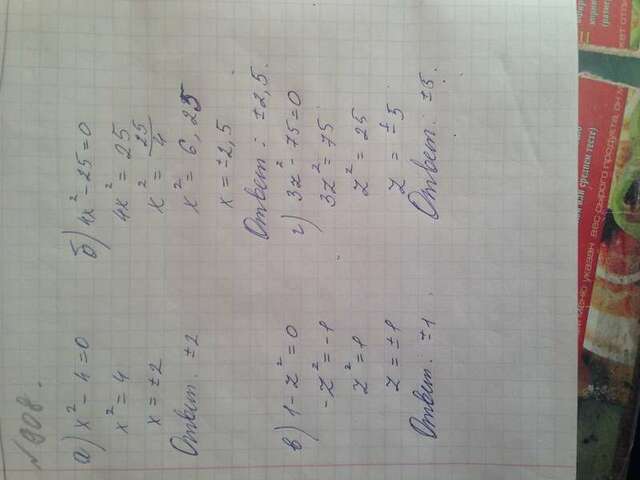 №908.
а) x² - 4 = 0
x² = 4
x = ±2
Ответ: ±2
б) 4x² - 25 = 0
4x² = 25
x² = 25/4
x² = 6,25
x = ±2,5
Ответ: ±2,5.
в) 1 - z² = 0
-z² = -1
z² = 1
z = ±1
Ответ: ±1.
г) 3z² - 75 = 0
3z² = 75
z² = 25
z = ±5
Ответ: ±5.
вес сырого продукта